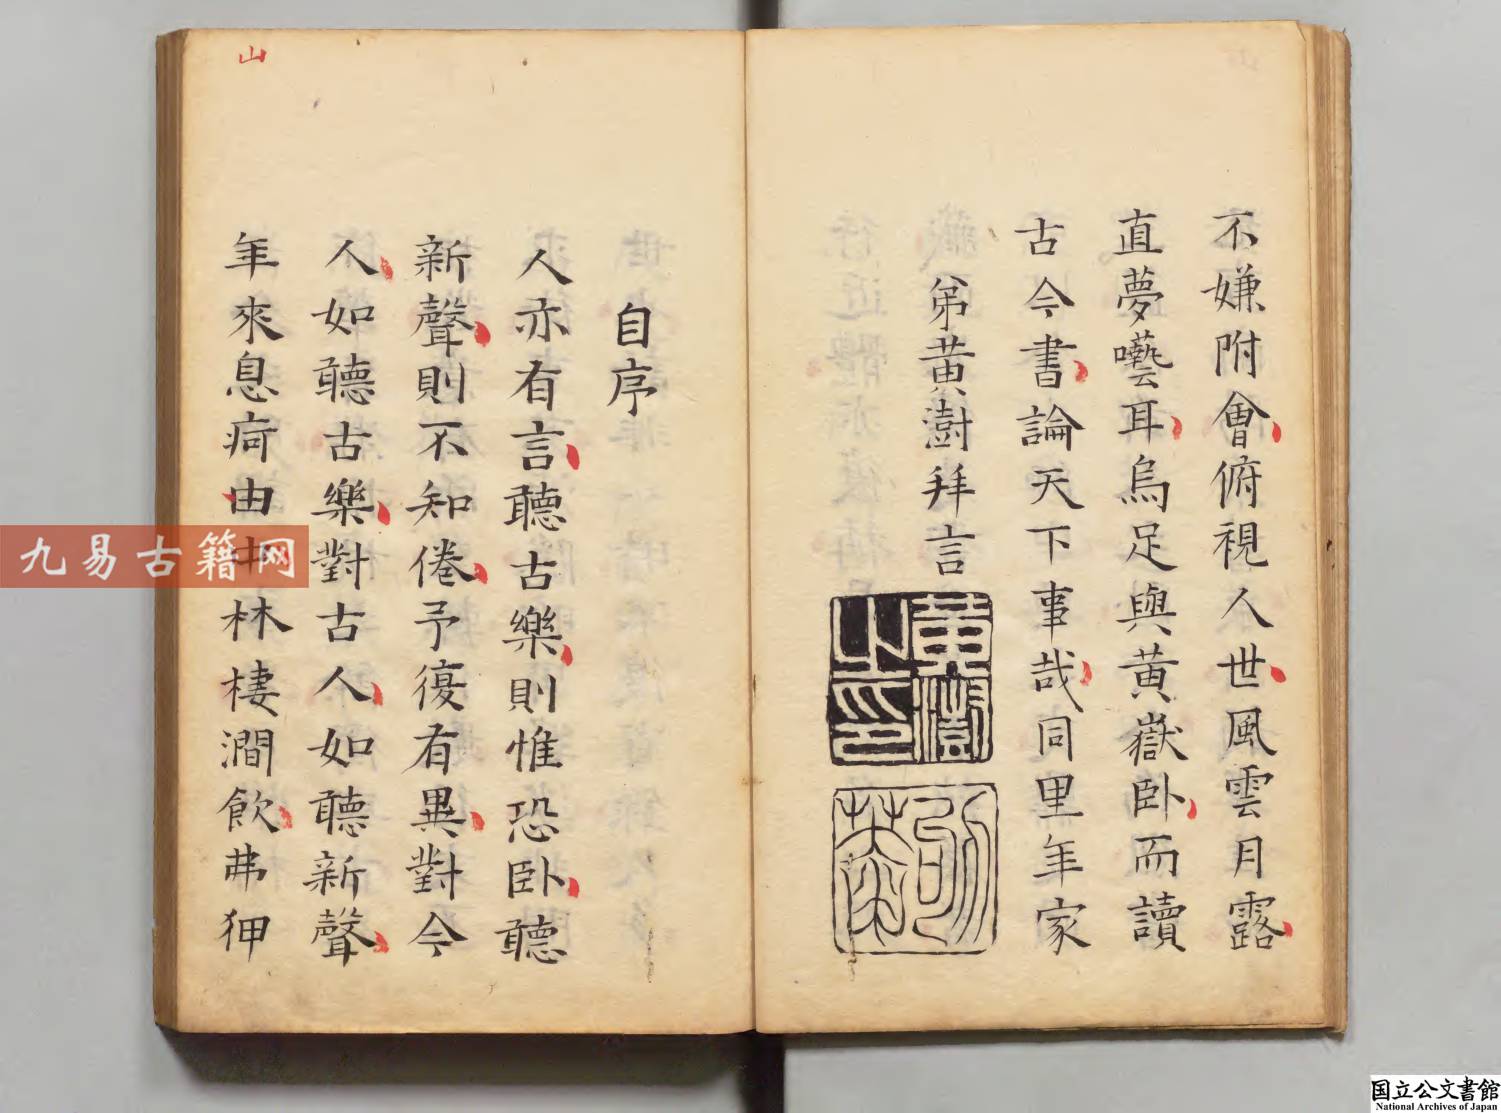 不嫌附會俯視人世風雲月露
直夢囈耳烏足與黃嶽卧而讀
古今書論天下事哉同里年家
弟黃澍拜言
黃澍之印
自序
人亦有言聽古樂則惟恐卧聽
新聲則不知倦予復有異對今
人如聽古樂對古人如聽新聲
年來息疴由中林棲澗飲弗狎
山
九易古籍网
国立公文書館
National Archives of Japan